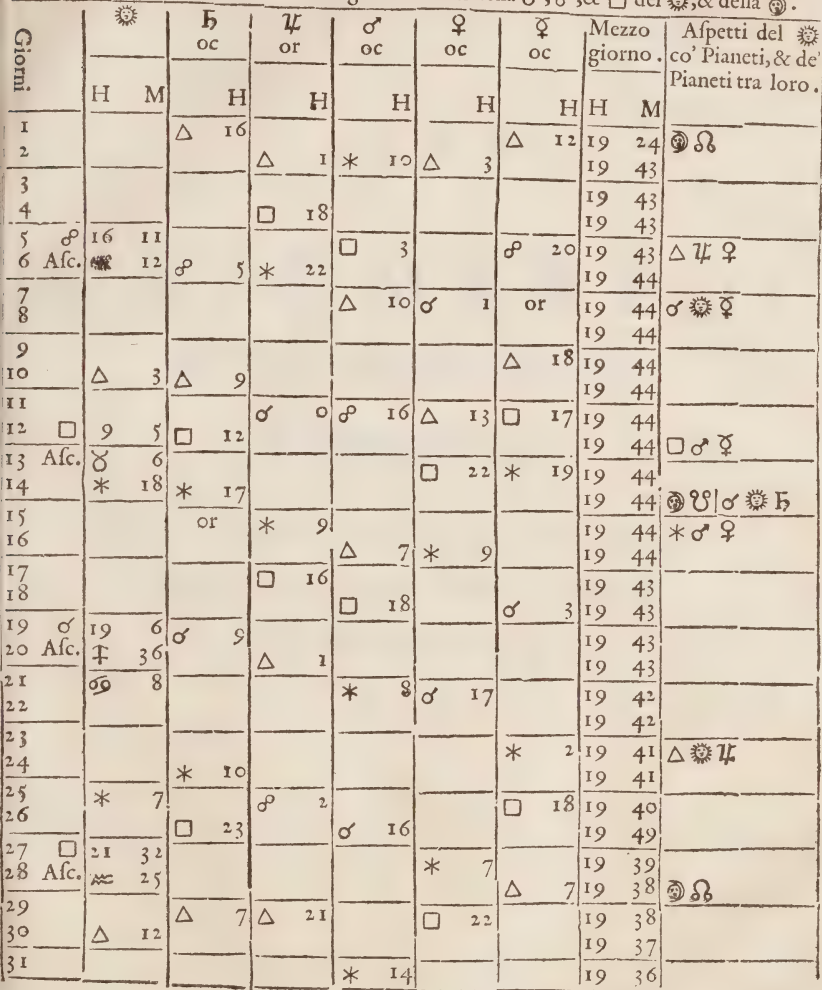 □ del ☼, & della
☼ ♄ ♃ ♂ ♀ ☿ Mezzo Aſpetti del ☼
Giorni oc or oc oc oc giorno. co' Pianeti, & de'
Pianeti tra loro.
H M H H H H H H M
1 △ 16 △ 12 19 24 ☽ ☊
2 △ 1 ✶ 10 △ 3 19 43
3 19 43
4 □ 18 19 43
5 ☍ 16 11 □ 3 ☍ 20 19 43 △ ♃ ♀
6 Aſc. 12 ☍ 5 ✶ 22 19 44
7 △ 10 ☌ 1 or 19 44 ☌ ☼ ☿
8 19 44
9 △ 18 19 44
10 △ 3 △ 9 19 44
11 ☌ 0 ☍ 16 △ 13 □ 17 19 44
12 □ 9 5 □ 12 19 44 □ ♂ ☿
13 Aſc. ♉ 6 □ 22 ✶ 19 19 44
14 ✶ 18 ✶ 17 19 44 ☽ ☋ | ☌ ☼ ♄
15 or ✶ 9 19 44 ✶ ♂ ♀
16 △ 7 ✶ 9 19 44
17 □ 16 19 43
18 □ 18 ☌ 3 19 43
19 ☌ 19 6 ☌ 9 19 43
20 Aſc. ♐ 36 △ 1 19 43
21 ♋ 8 ✶ 8 ☌ 17 19 42
22 19 42
23 ✶ 2 19 41 △ ☼ ♃
24 ✶ 10 19 41
25 ✶ 7 ☍ 2 □ 18 19 40
26 □ 23 ☌ 16 19 49
27 □ 21 32 ✶ 7 19 39
28 Aſc. ♒ 25 △ 7 19 38 ☽ ☊
29 △ 7 △ 21 □ 22 19 38
30 △ 12 19 37
31 ✶ 14 19 36